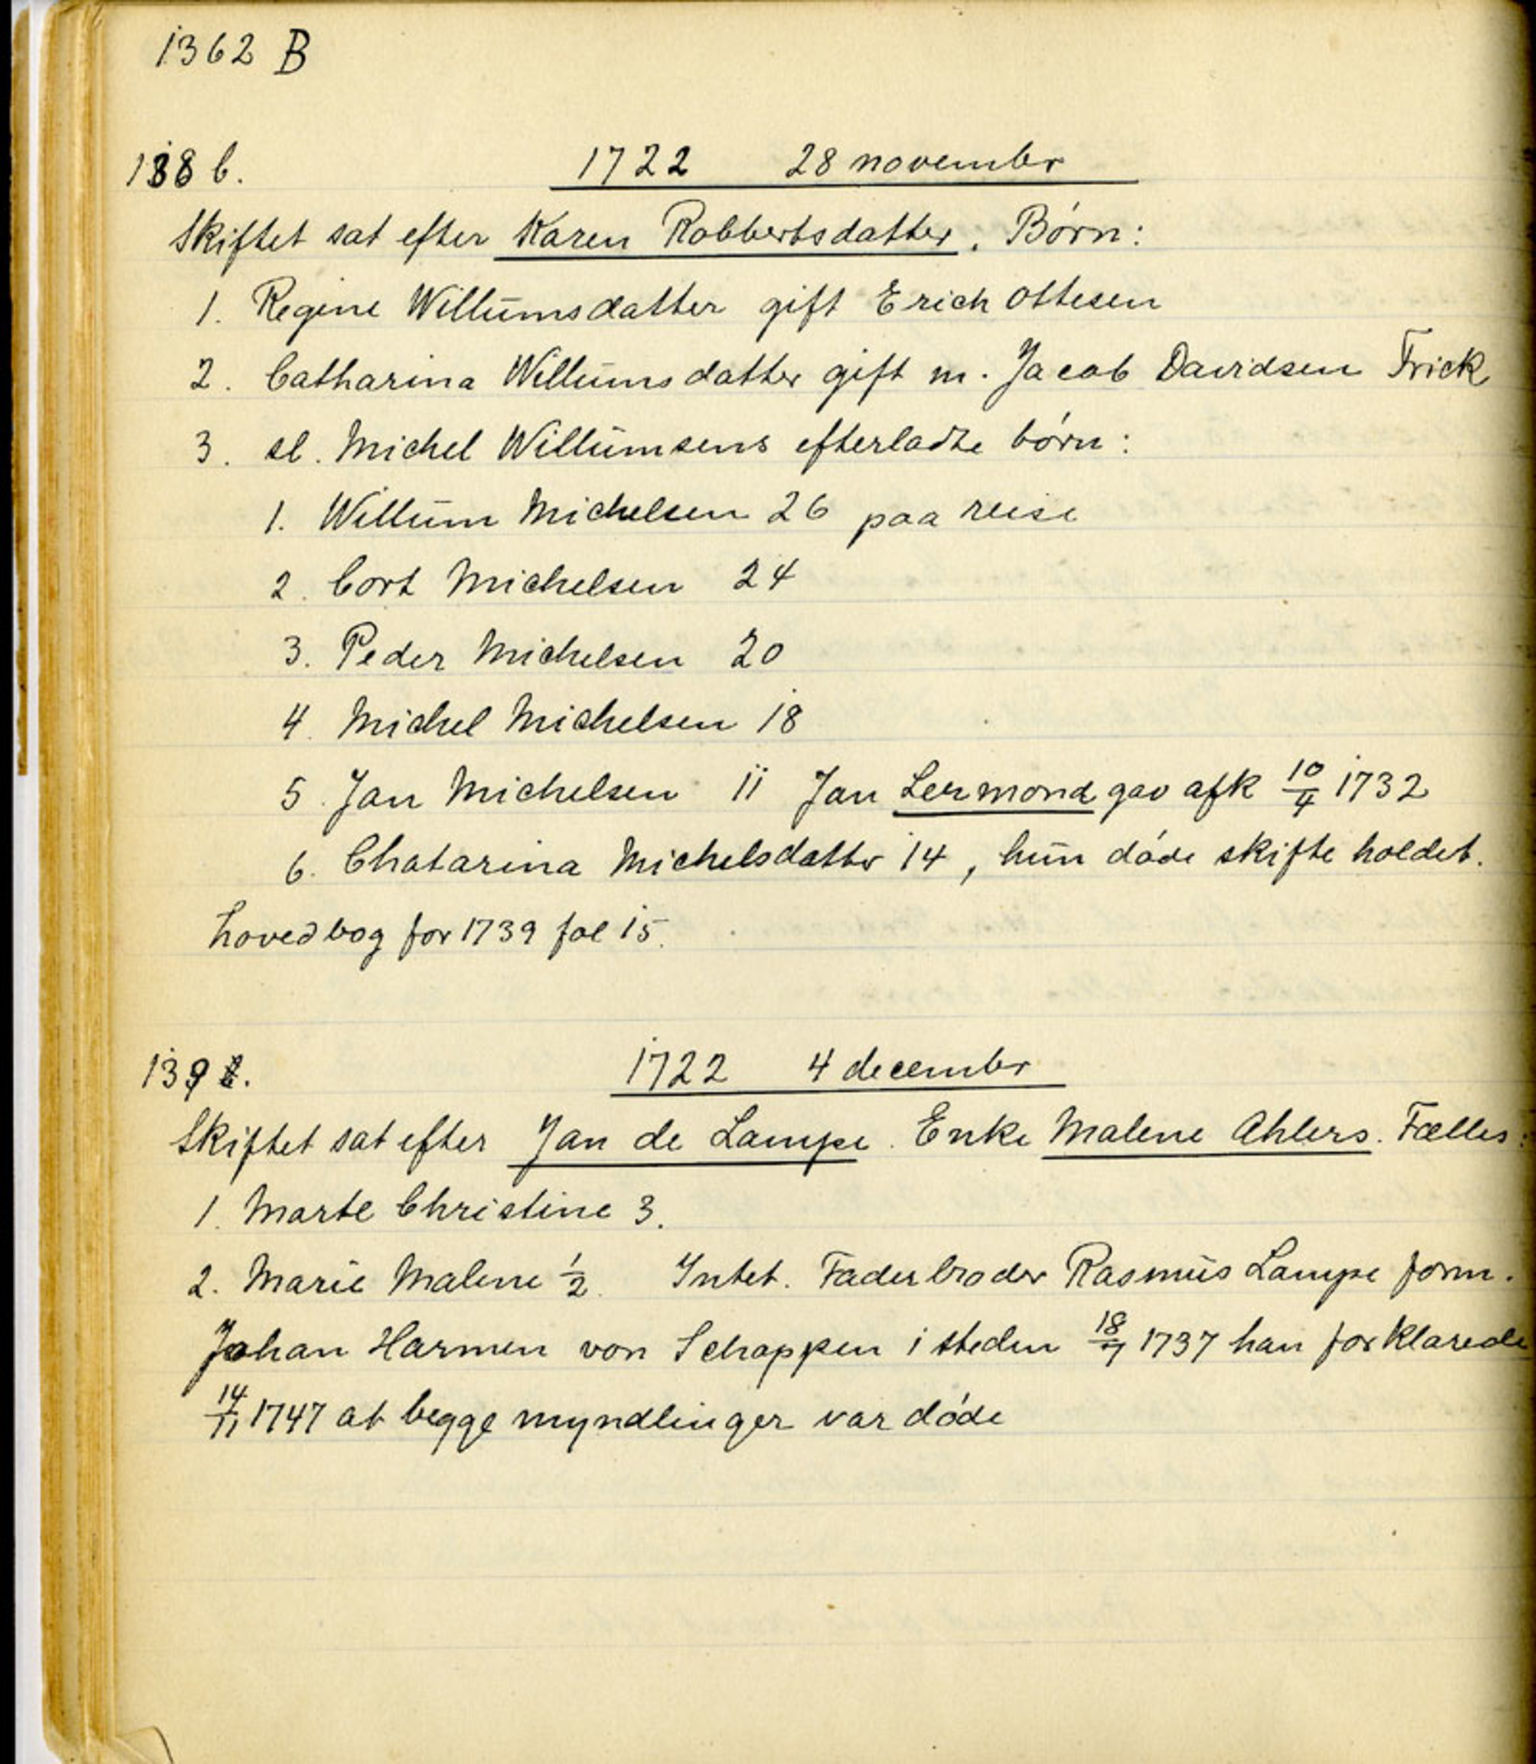 1362 B
138 b. 1722 28 novembr
Skiftet sat efter Karen Robbertsdatter. Børn:
1. Regine Willumsdatter gift Erich Ottesen
2. Catharina Willumsdatter gift m. Jacob Davidsen Frick
3. sl. Michel Willumsens efterladte børn:
1. Willum Michelsen 26 paa reise
2. Cort Michelsen 24
3. Peder Michelsen 20
4. Michel Michelsen 18
5. Jan Michelsen 11 Jan Lermond gav afk 10/4 1732
6. Chatarina Michelsdattr 14, hun døde skifte holdet.
hovedbog for 1739 fol 15.
139 1722 4 decembr
Skiftet sat efter Jan de Lampe. Enke Malene Ahlers. Fælles:
1. Marte Christine 3.
2. Marie Malene 1/2. Intet. Faderbroder Rasmus Lampe form.
Johan Harmen von Schappen i steden 18/7 1737 han forklarede
14/11 1747 at begge myndlinger var døde